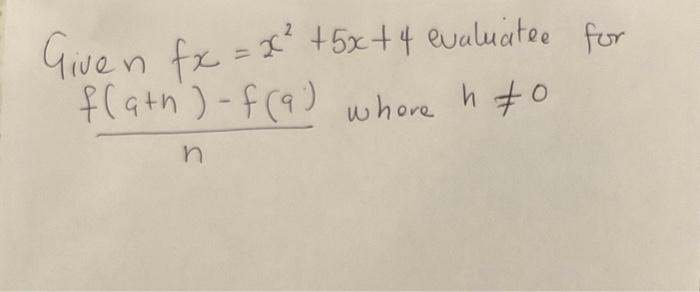 Given fx = x² + 5x + 4 evaluatee for
f(a+h) - f(a) where h ≠ 0
h